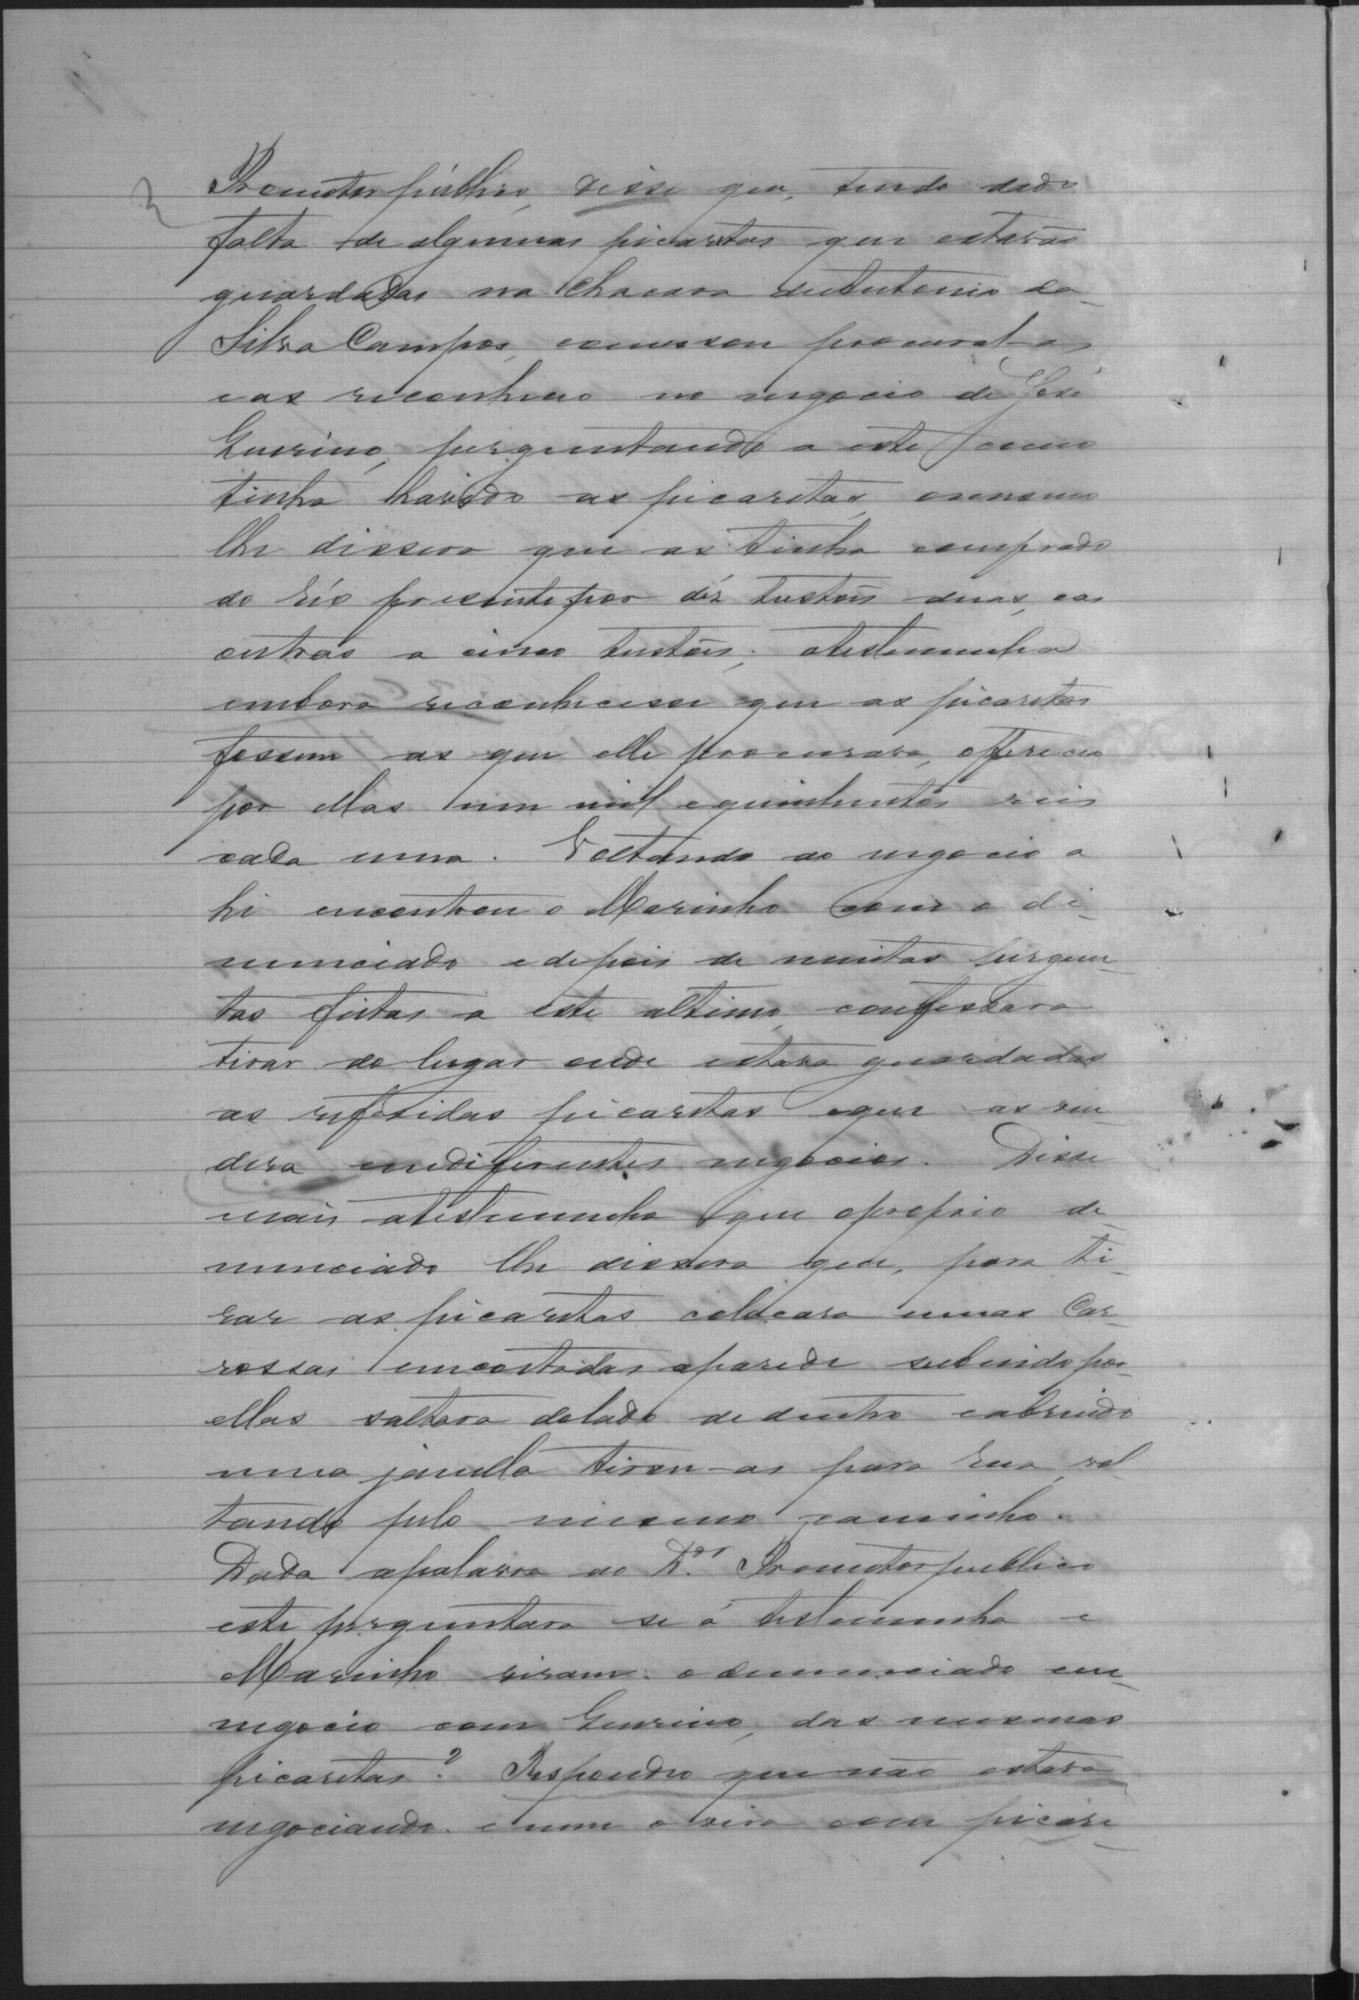 Promotor público, disse que, tendo dado
falta de algumas picaretas que estavão
guardadas na Chacara de Antonio da
Silva Campos, comessou procural-as
e as reconheceo no negocio de José
Guerino, perguntando a este como
tinha havido as picaretas, o mesmo
lhe dissera que as tinha comprado
do réo presente por déz tostões duas, e as
outras a cinco tostões; a testemunha
embora reconhecesse que as picaretas
fossem as que elle procurava, offereceo
por ellas um mil e quinhentos reis
cada uma. Voltando ao negocio a
hi encontrou o Marinho com o de-
nunciado e depois de muitas pergun-
tas feitas a este ultimo, confessara
tirar do lugar onde estava guardadas
as referidas picaretas e que as ven-
dera em diferentes negocios. Disse
mais a testemunha que o proprio de-
nunciado lhe dissera que, para ti-
rar as picaretas colocara umas Car-
rossas encostadas a parede subindo por
ellas saltara do lado de dentro e abrindo
uma janella tirou-as para rua, vol-
tando pelo mesmo caminho.
Dada a palavra ao Dor Promotor publico
este perguntara se á testemunha e
Marinho viram o denunciado em
negocio com Guerino, das mesmas
picaretas? Respondeo que não estava
negociando e nem o vira com picare-